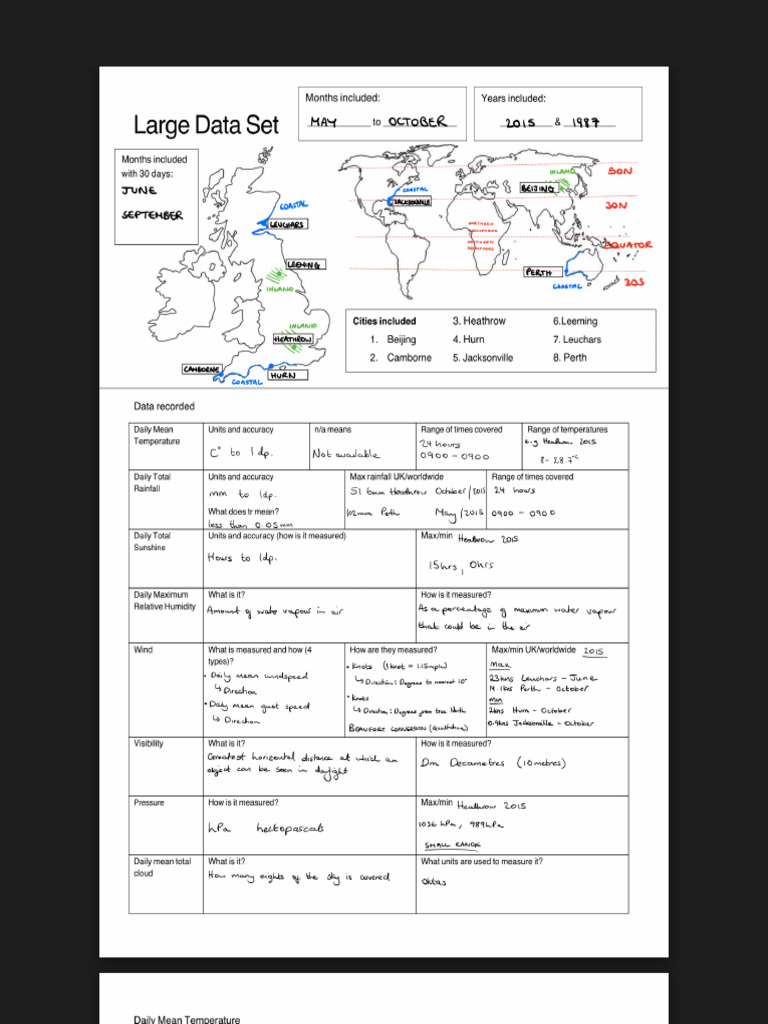 Months included:
MAY to OCTOBER
Years included:
2015 & 1987
Large Data Set
Months included
with 30 days:
JUNE
SEPTEMBER
COASTAL
LEUCHARS
LEEMING
INLAND
INLAND
HEATHROW
CAMBORNE
HURN
COASTAL
INLAND
50N
BEIJING
COASTAL
JACKSONVILLE
30N
NORTHERN
HEMISPHERE
SOUTHERN
HEMISPHERE
EQUATOR
PERTH
COASTAL
30S
Cities included
1. Beijing
2. Camborne
3. Heathrow
4. Hurn
5. Jacksonville
6.Leeming
7. Leuchars
8. Perth
Data recorded
Daily Mean
Temperature
Units and accuracy
C° to 1dp.
n/a means
Not available
Range of times covered
24 hours
0900 - 0900
Range of temperatures
e.g Heathrow 2015
8 - 28.7°C
Daily Total
Rainfall
Units and accuracy
mm to 1dp.
What does tr mean?
less than 0.05mm
Max rainfall UK/worldwide
51 6mm Heathrow October/2015
102mm Perth May/2015
Range of times covered
24 hours
0900 - 0900
Daily Total
Sunshine
Units and accuracy (how is it measured)
Hours to 1dp.
Max/min Heathrow 2015
15hrs, 0hrs
Daily Maximum
Relative Humidity
What is it?
Amount of water vapour in air
How is it measured?
As a percentage of maximum water vapour
that could be in the air
Wind
What is measured and how (4
types)?
• Daily mean windspeed
↳ Direction
• Daily mean gust speed
↳ Direction
How are they measured?
• Knots (1 knot = 1.15mph)
↳ Direction: Degrees to nearest 10°
• Knots
↳ Direction: Degrees from true North
BEAUFORT CONVERSION (Qualitative)
Max/min UK/worldwide 2015
max
23kns Leuchars - June
14.1kns Perth - October
min
2kns Hurn - October
0.9kns Jacksonville - October
Visibility
What is it?
Greatest horizontal distance at which an
object can be seen in daylight
How is it measured?
Dm Decametres (10 metres)
Pressure
How is it measured?
hPa hectopascals
Max/min Heathrow 2015
1036 hPa, 989hPa
SMALL RANGE
Daily mean total
cloud
What is it?
How many eights of the sky is covered
What units are used to measure it?
Oktas
Daily Mean Temperature